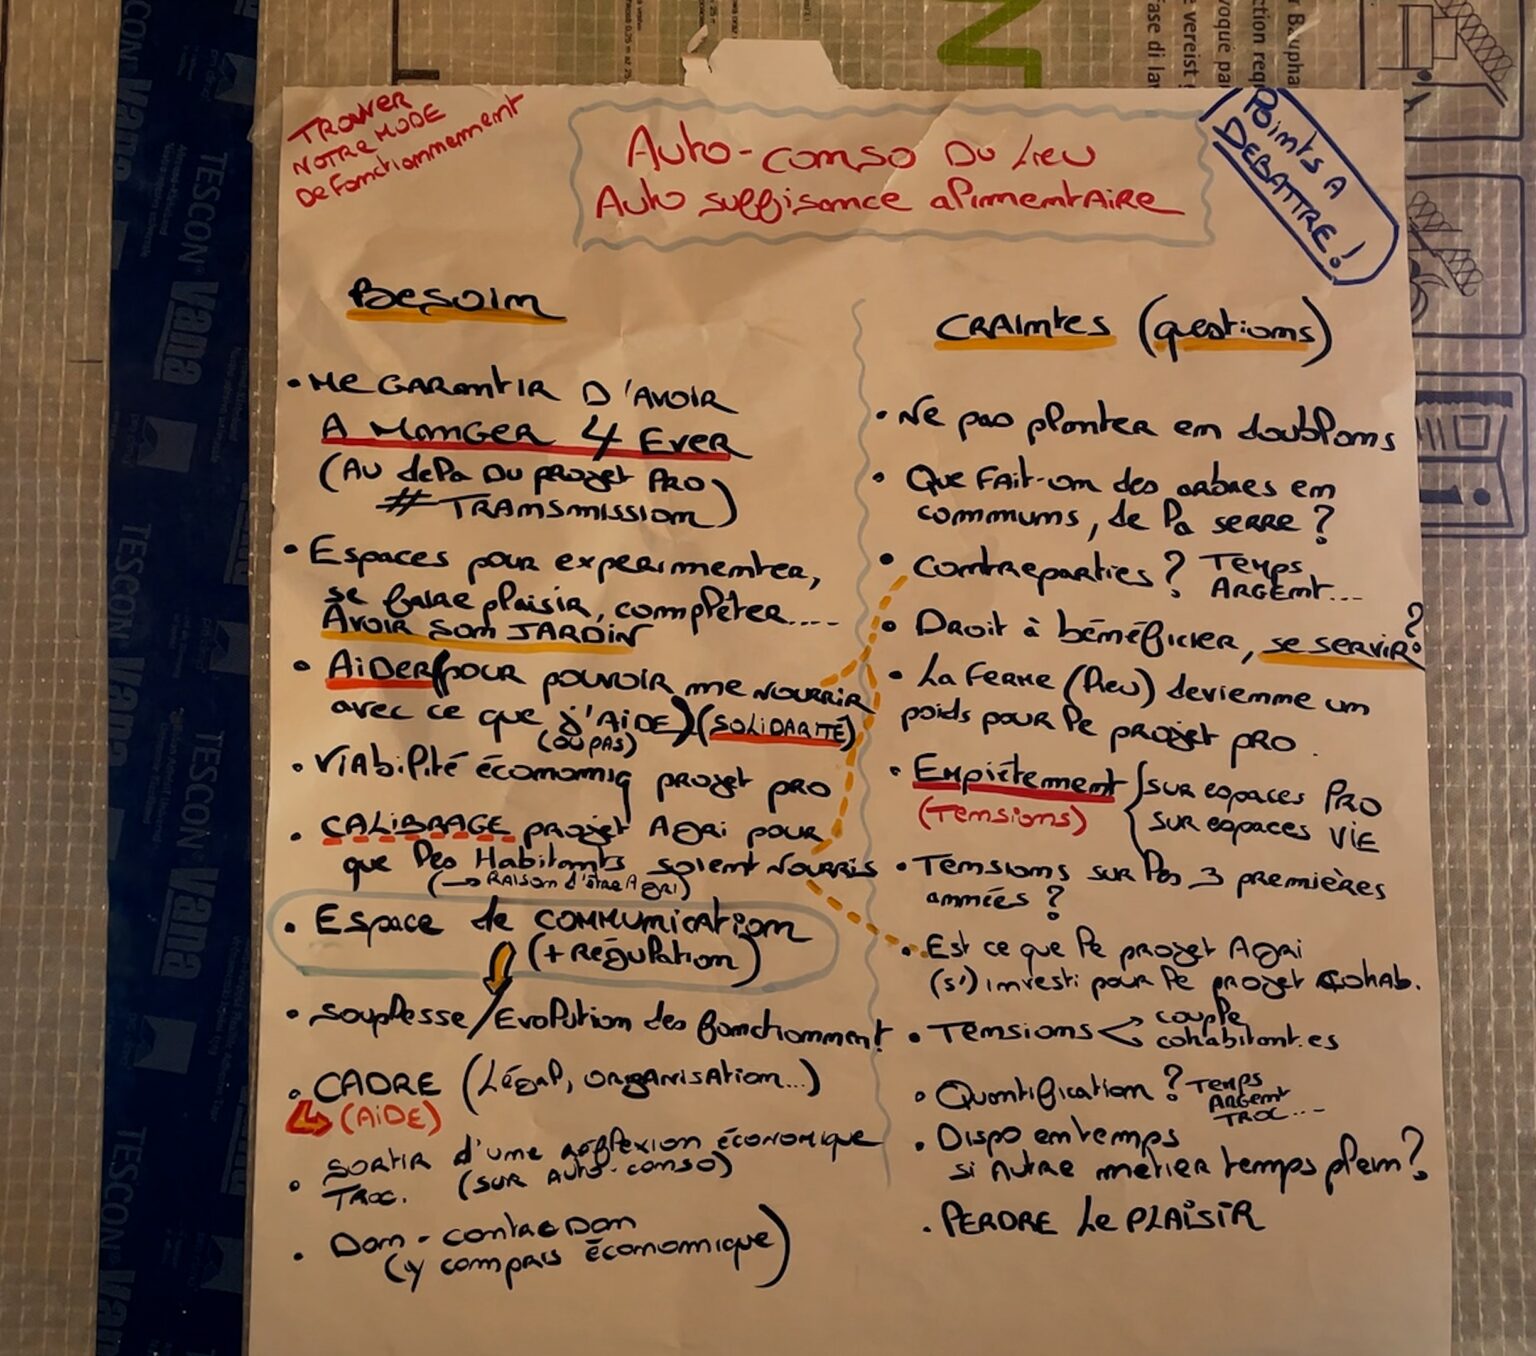 TROUVER
NOTRE MODE
De Fonctionnement
Auto-conso Du Lieu
Auto suffisance alimentaire
Points A
DEBATTRE!
Besoin
• Me GARAntIR D'AVOIR
A MAnGER 4 EVER
(Au delà Du projet PRO
# TRAnsmission)
• Espaces pour experimenter,
se faire plaisir, compléter....
AVOIR son JARDIN
• AiDER (pour pouvoir me nourrir
avec ce que j'AiDE) (SOLIDARITÉ)
(OU PAS)
• Viabilité économiq projet pro
• CALIBRAGE projet Agri pour
que les Habitants soient nourris
(→ Raison d'être Agri)
• Espace de communication
(+ Régulation)
• Souplesse / Evolution des fonctionnment
• CADRE (Légal, organisation...)
(AiDE)
• Sortir d'une réflexion économique
Troc. (sur auto-conso)
• Don - contre Don
(y compris économique)
Craintes (questions)
• Ne pas planter en doublons
• Que fait-on des arbres en
communs, de la serre ?
• Contreparties ? Temps
Argent...
• Droit à bénéficier, se servir ?
• La Ferme (lieu) devienne un
poids pour le projet pro.
• Empiétement { sur espaces PRO
(Tensions) sur espaces VIE
• Tensions sur les 3 premières
années ?
• Est ce que le projet Agri
(s') investi pour le projet cohab.
• Tensions < couple
cohabitant.es
• Quantification ? Temps
Argent
Troc...
• Dispo en temps
si autre métier temps plein ?
• PERDRE Le PLAiSiR
TESCON® Vana
TESCON® Vana
TESCON® Vana
TESCON® Vana